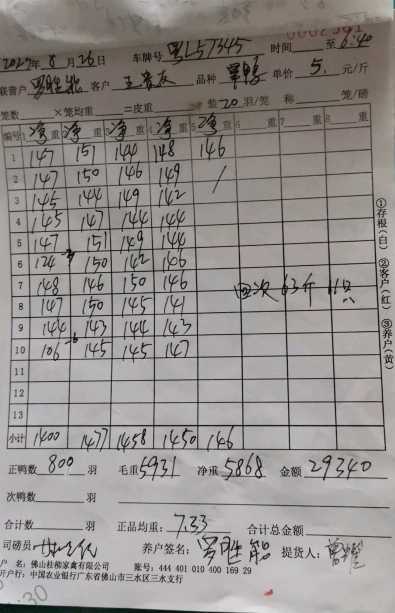 0002501
2022年8月26日 车牌号 粤L57345 时间 至6:40
客户 品种 单价 5. 元/斤
笼数 ×笼均重 =皮重 装20羽/笼 称 笼/磅
编号 1净重 2净重 3净重 4净重 5净重 6 重 7 重 8 重
1 147 151 144 148 146
2 147 150 146 149 /
3 145 144 149 142
4 145 147 144 144
5 147 151 149 144
6 124 150 142 146
7 148 146 150 146 次 63斤 只
8 147 150 145 141
9 144 143 144 143
10 106 145 145 147
11
12
13
小计 1400 1477 1458 1450 146
正鸭数 800 羽 毛重 5931 净重 5868 金额 29340
次鸭数 羽
合计数 羽 正品均重: 7.33 合计总金额
司磅员 养户签名: 提货人:
户 名: 佛山桂柳家禽有限公司 账号: 444 401 010 400 169 29
开户行: 中国农业银行广东省佛山市三水区三水支行
①存根(白) ②客户(红) ③养户(黄)